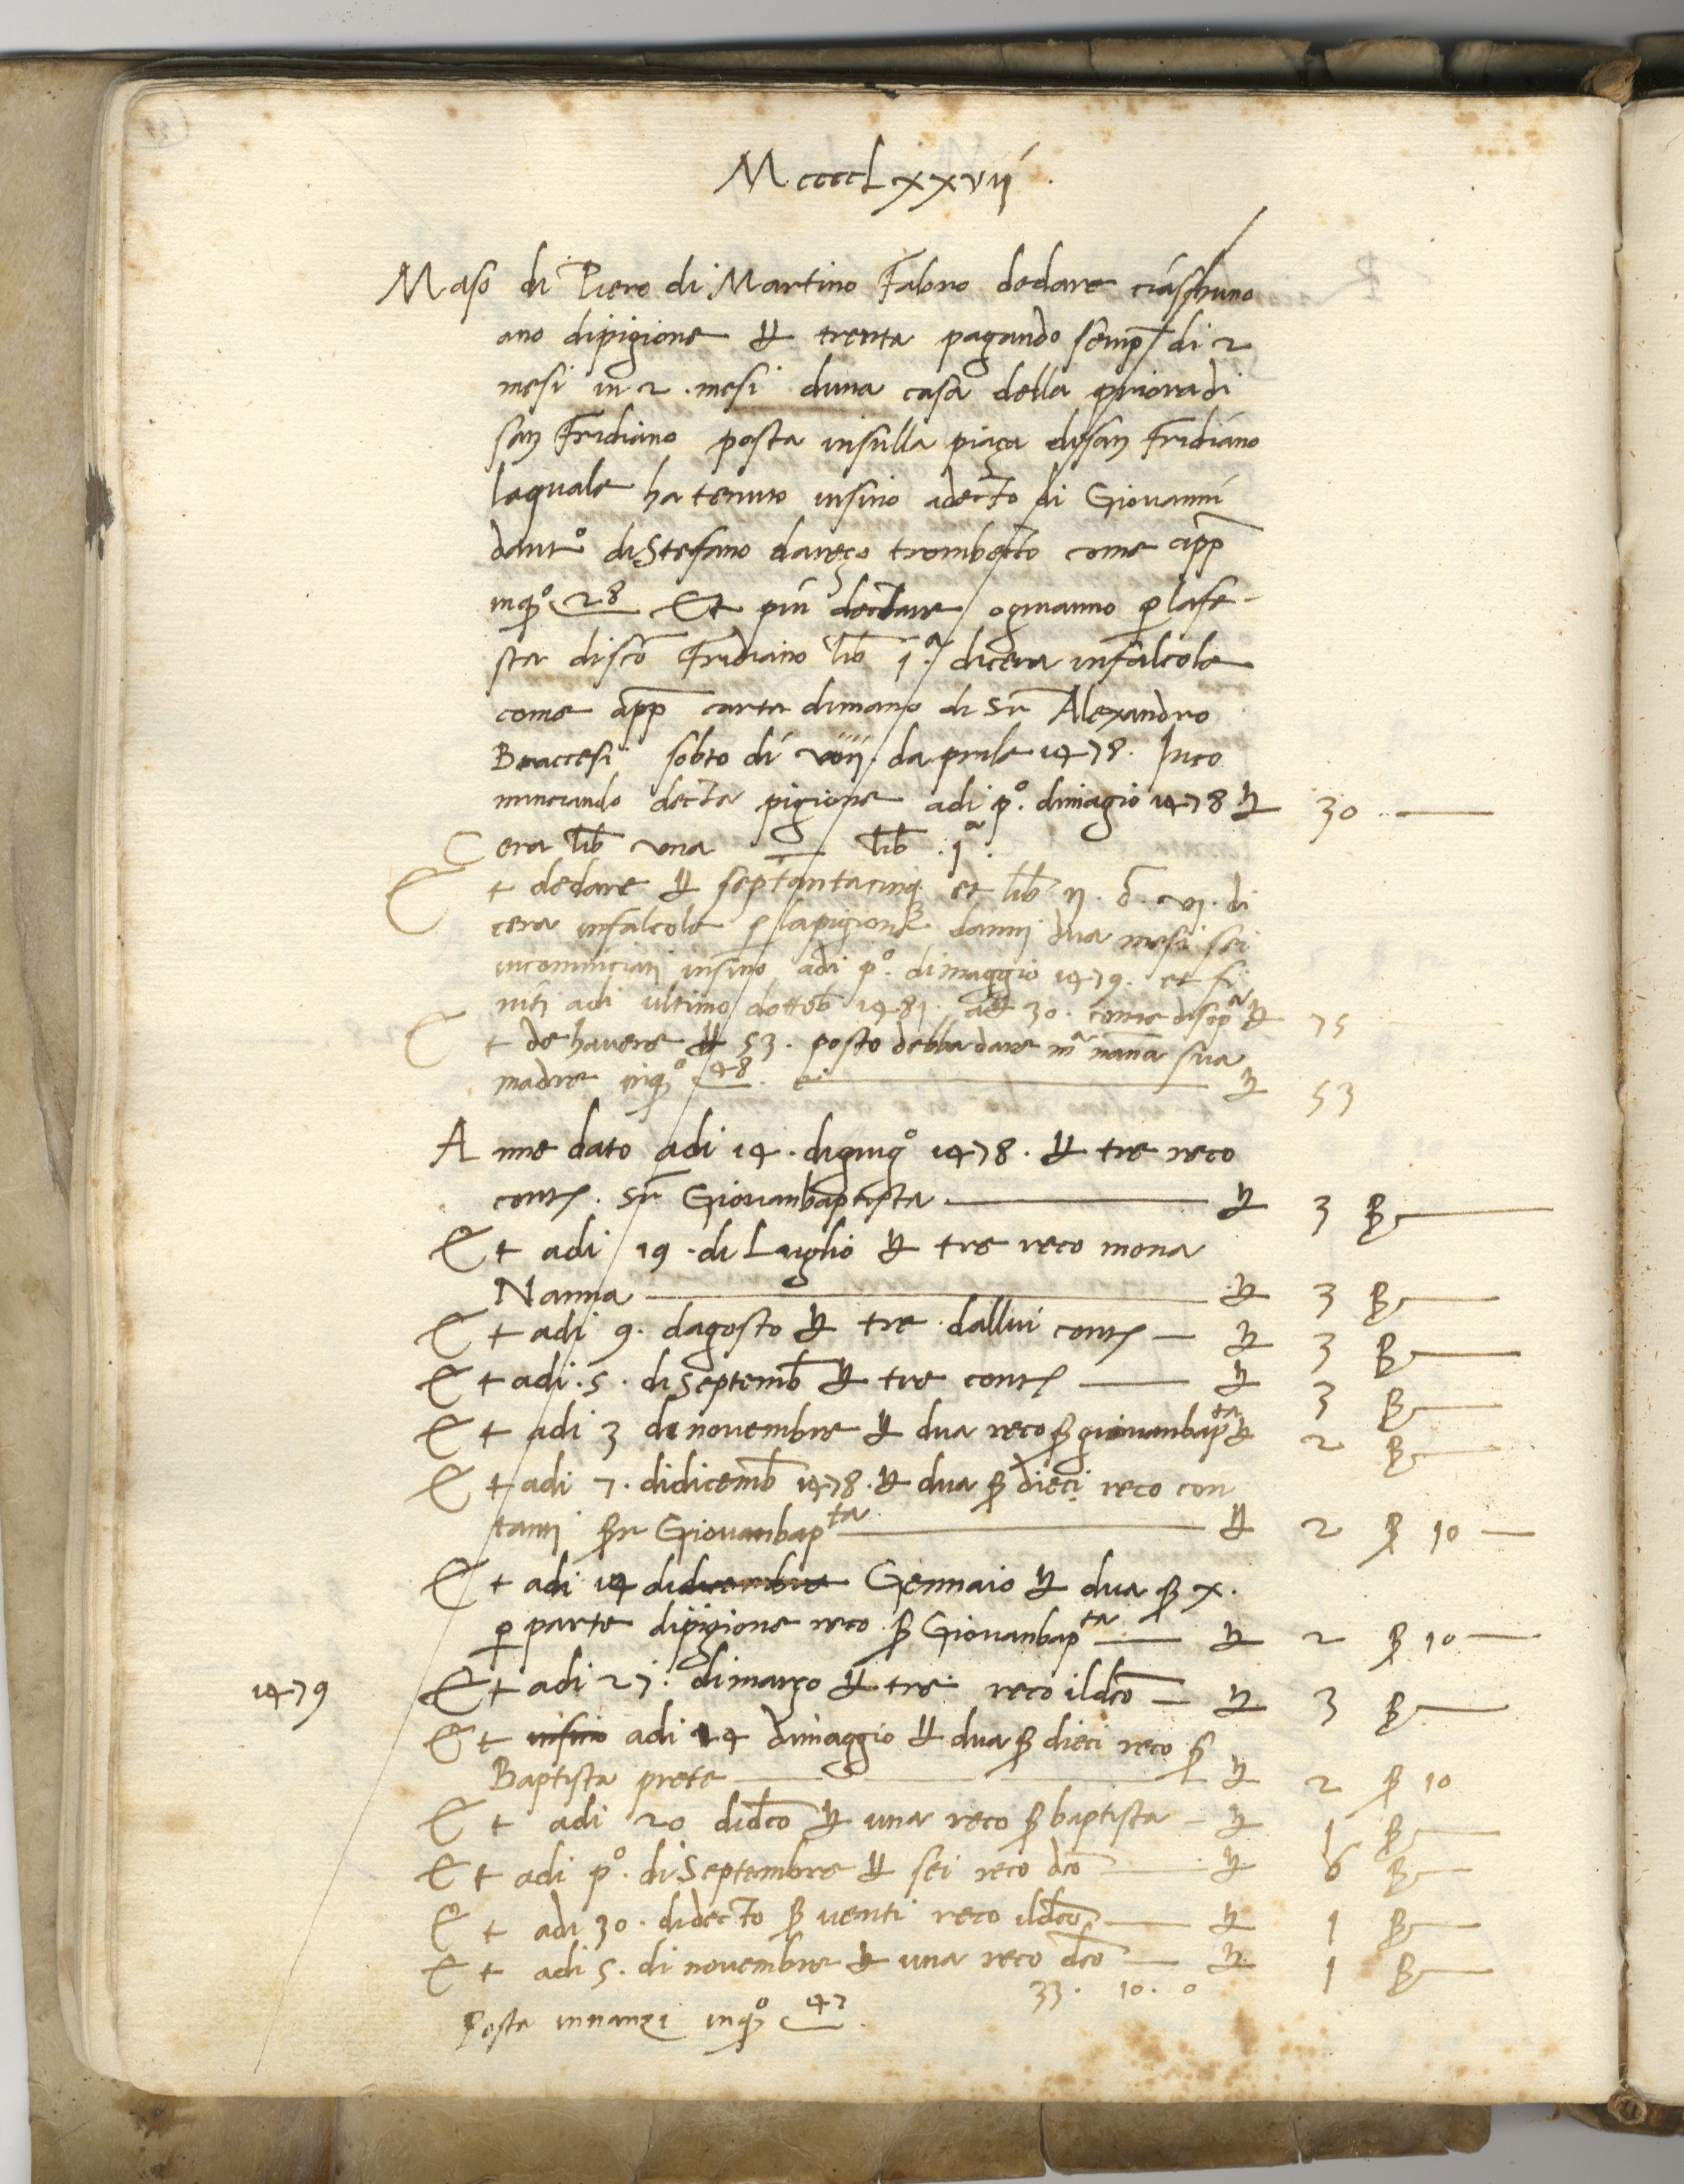 MccccLxxvij
Maso di Piero di Martino Fabro dedare ciaschuno
ano dipigione ℔ trenta pagando semp di 2
mesi in 2. mesi duna casa della priora di
san Fridiano posta insulla piaça di san Fridiano
laquale ha tenuto insino adecto di Giovanni
dantº di Stefano dareço trombecto come app
inqº 28 Et piu dectare ognanno p lafe-
sta di sco Fridiano lib 1ª dicera infalcole
come app carta dimano di Sr Alexandro
Braccesi sobto di viiij. daprile 1478. Inco
minciando decta pigione adi pº. dimagio 1478 ℔ 30
Cera lib una lib .1ª.
Et dedare ℔ septantacinq et lib ij. d. vi. di
cera infalcole p lapigione danni dua mesi sei
incominciati insino adi pº. dimaggio 1479. et fi
niti adi ultimo dottob 1481. a ℔ 30. come disopª ℔ 75
Et de havere ℔ 53. posto debbadare mª nanna sua
madre inqº 48. ℔ 53
A nne dato adi 14. digiugº 1478. ℔ tre reco
conti. Sr Giovanbaptista ℔ 3 ß
Et adi 19. di Luglio ℔ tre reco mona
Nanna ℔ 3 ß
Et adi 9. dagosto ℔ tre dallui conti ℔ 3 ß
Et adi .5. di Septemb ℔ tre conti ℔ 3 ß
Et adi 3 di novembre ℔ dua reco ß giovanbapta ℔ 2 ß
Et adi 7. didicemb 1478. ℔ dua ß dieci reco con
tanti ßr Giovanbapta ℔ 2 ß 10
Et adi 14 didicembre Gennaio ℔ dua ß x.
p parte dipigione reco ß Giovanbapta ℔ 2 ß 10
1479 Et adi 27. di março ℔ tre reco ildco ℔ 3 ß
Et insino adi 14 dimaggio ℔ dua ß dieci reco ß
Baptista prete ℔ 2 ß 10
Et adi 20 didco ℔ una reco ß baptista ℔ 1 ß
Et adi pº. di Septembre ℔ sei reco dco ℔ 6 ß
Et adi 30. didecto ß venti reco ildco ℔ 1 ß
Et adi 5. di novembre ℔ una reco dco ℔ 1 ß
33. 10. 0
Posta innanzi inqº 47.